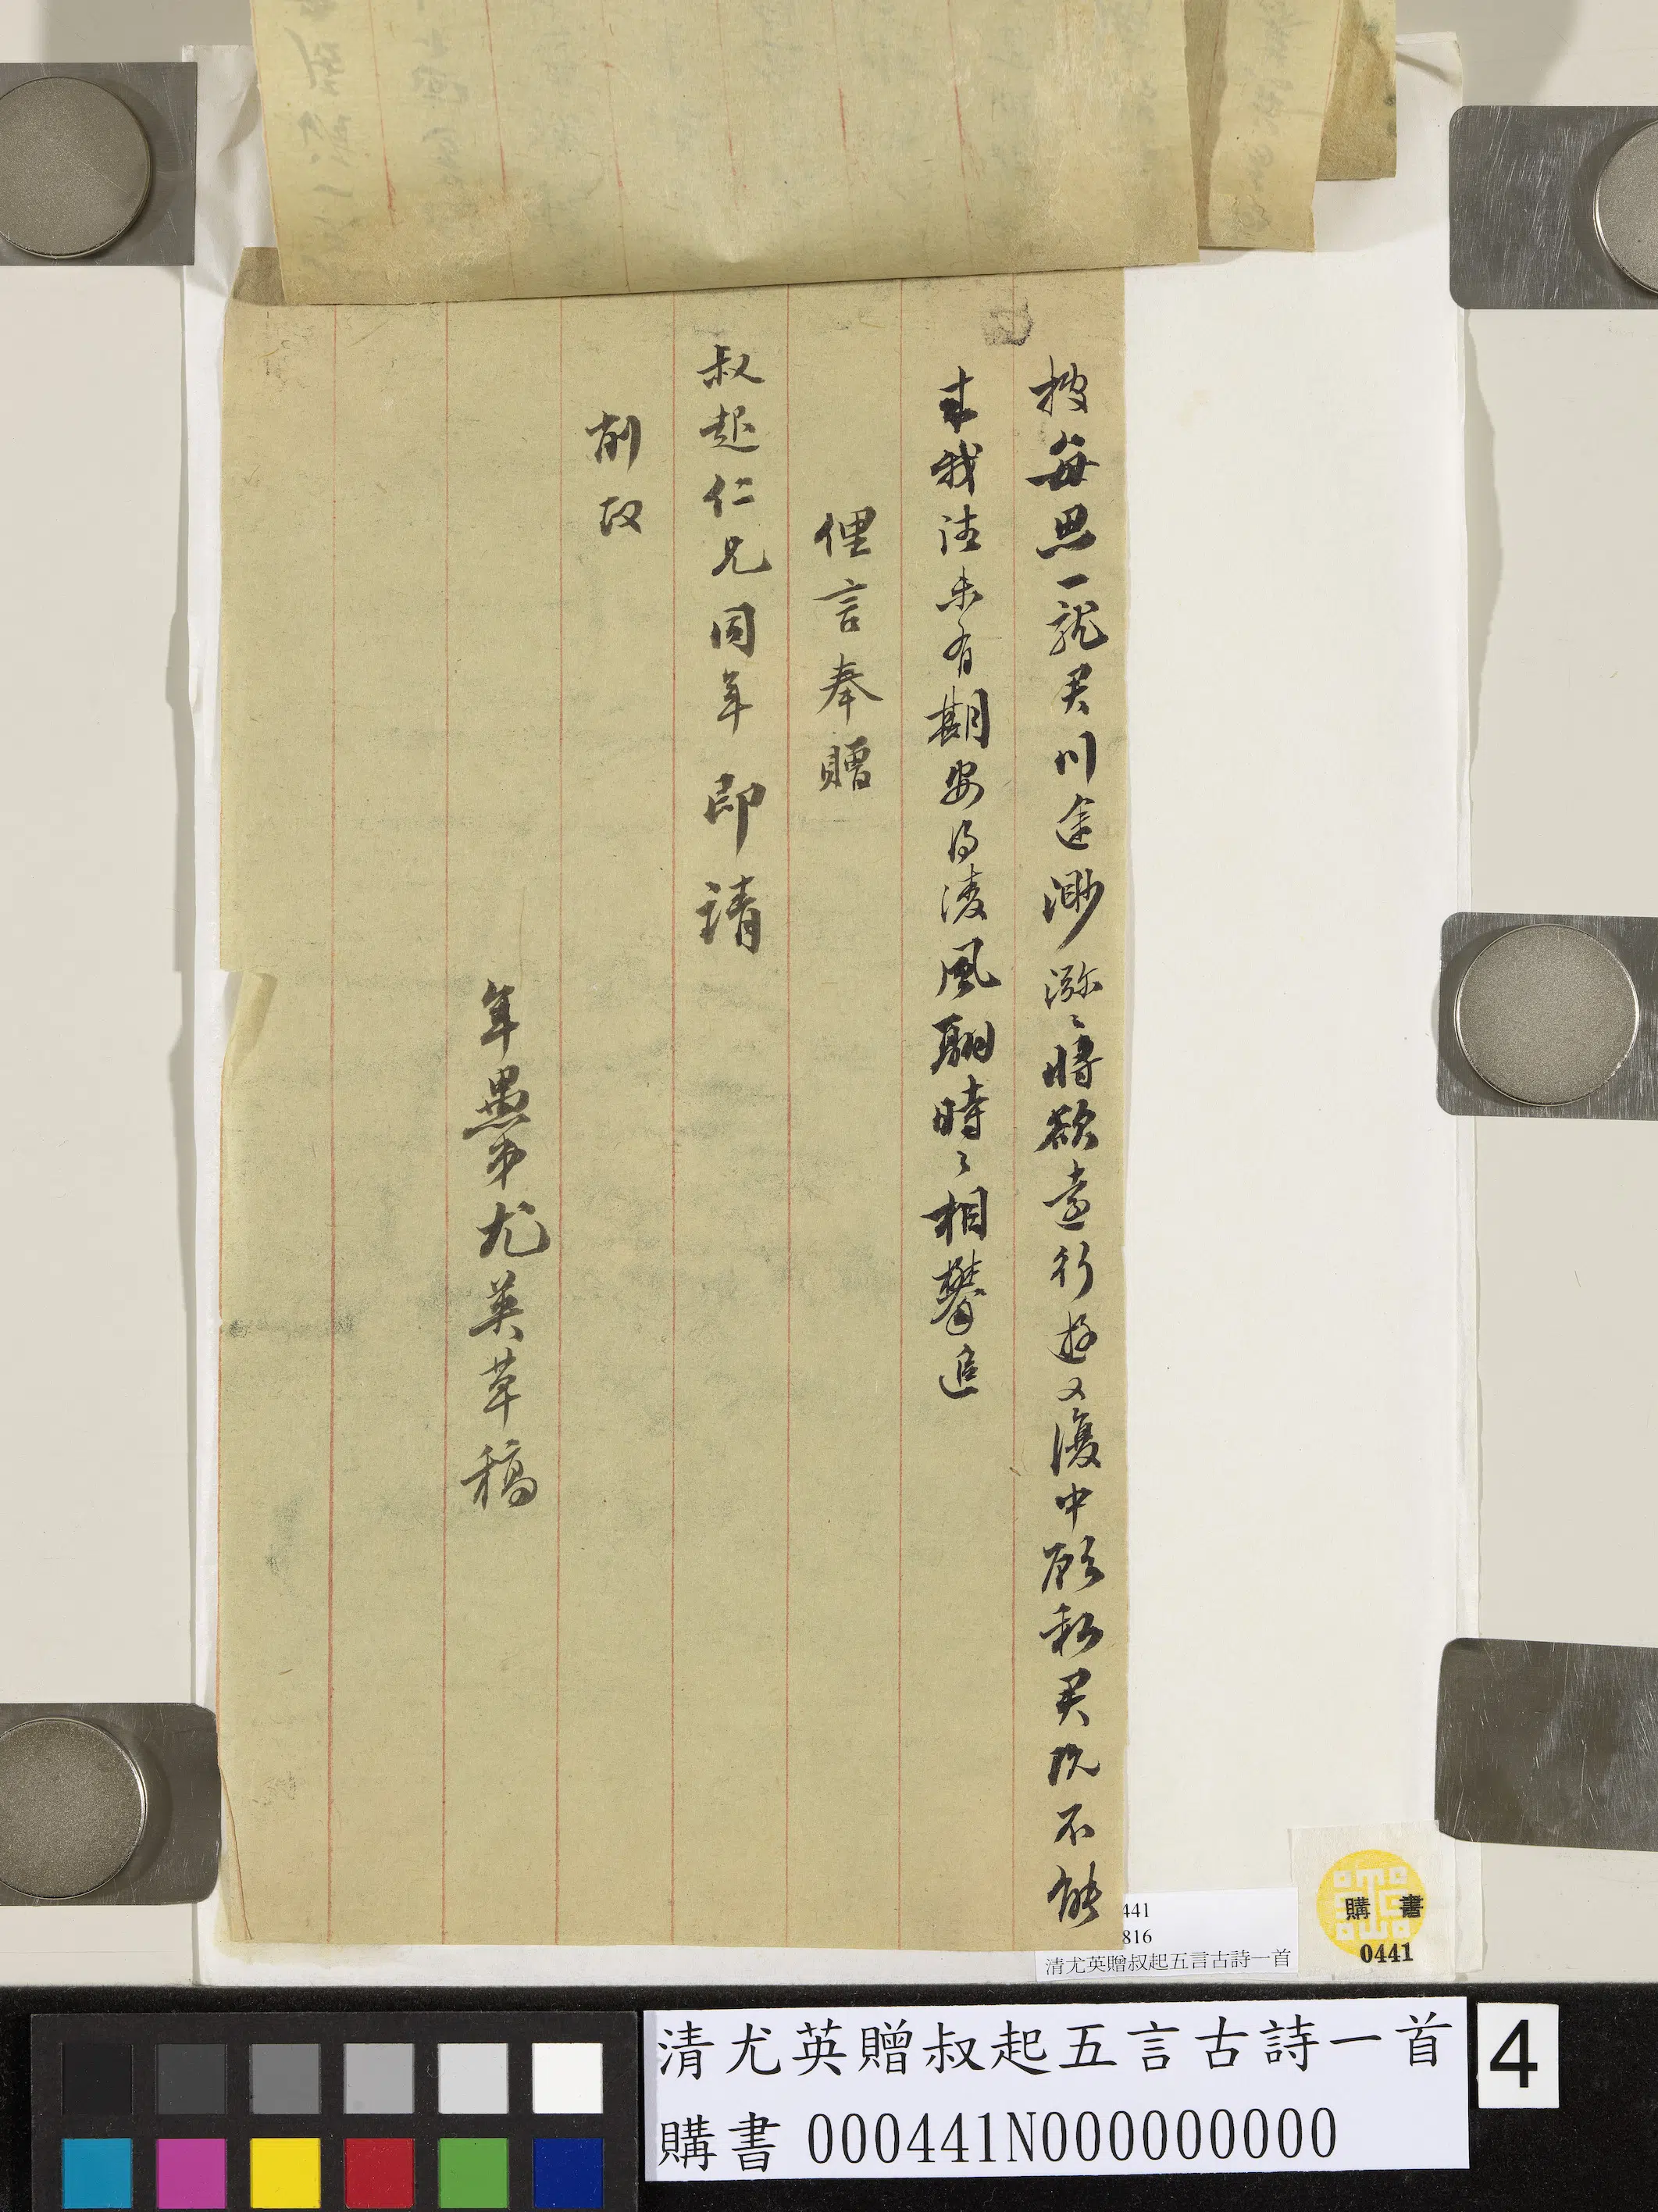 披每思一就君川途渺瀰〻將欲遠行遊又復中顧私君既不能
來我往未有期安得淩風翮時〻相攀追
俚言奉贈
叔起仁兄同年 即請
削改
年愚弟尤英草稿
441
816
清尤英贈叔起五言古詩一首
購書
0441
清尤英贈叔起五言古詩一首
購書 000441N000000000
4